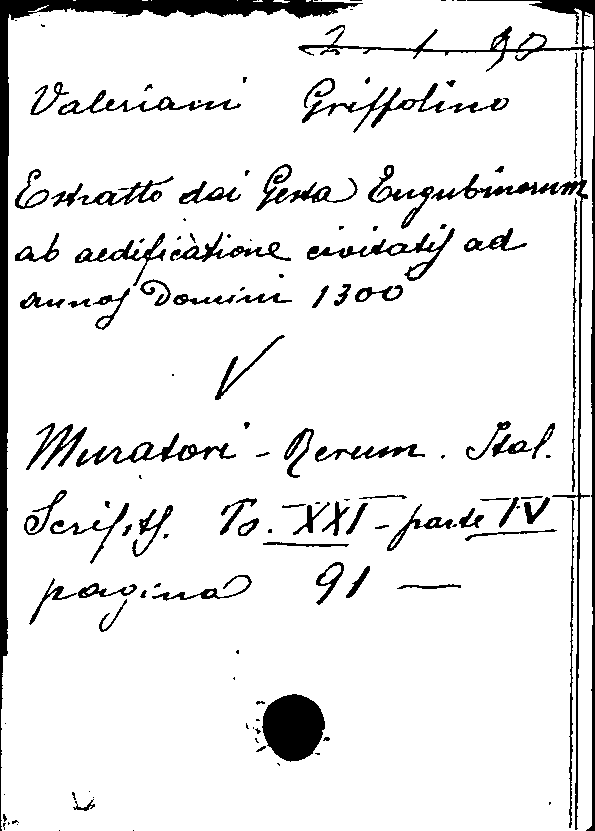 2. 1. 90
Valeriani Griffolino
Estratto dai Gesta Eugubinorum
ab aedificatione civitatis ad
annos Domini 1300
V
Muratori - Rerum. Ital.
Script. To. XXI - parte IV
pagina 91 —